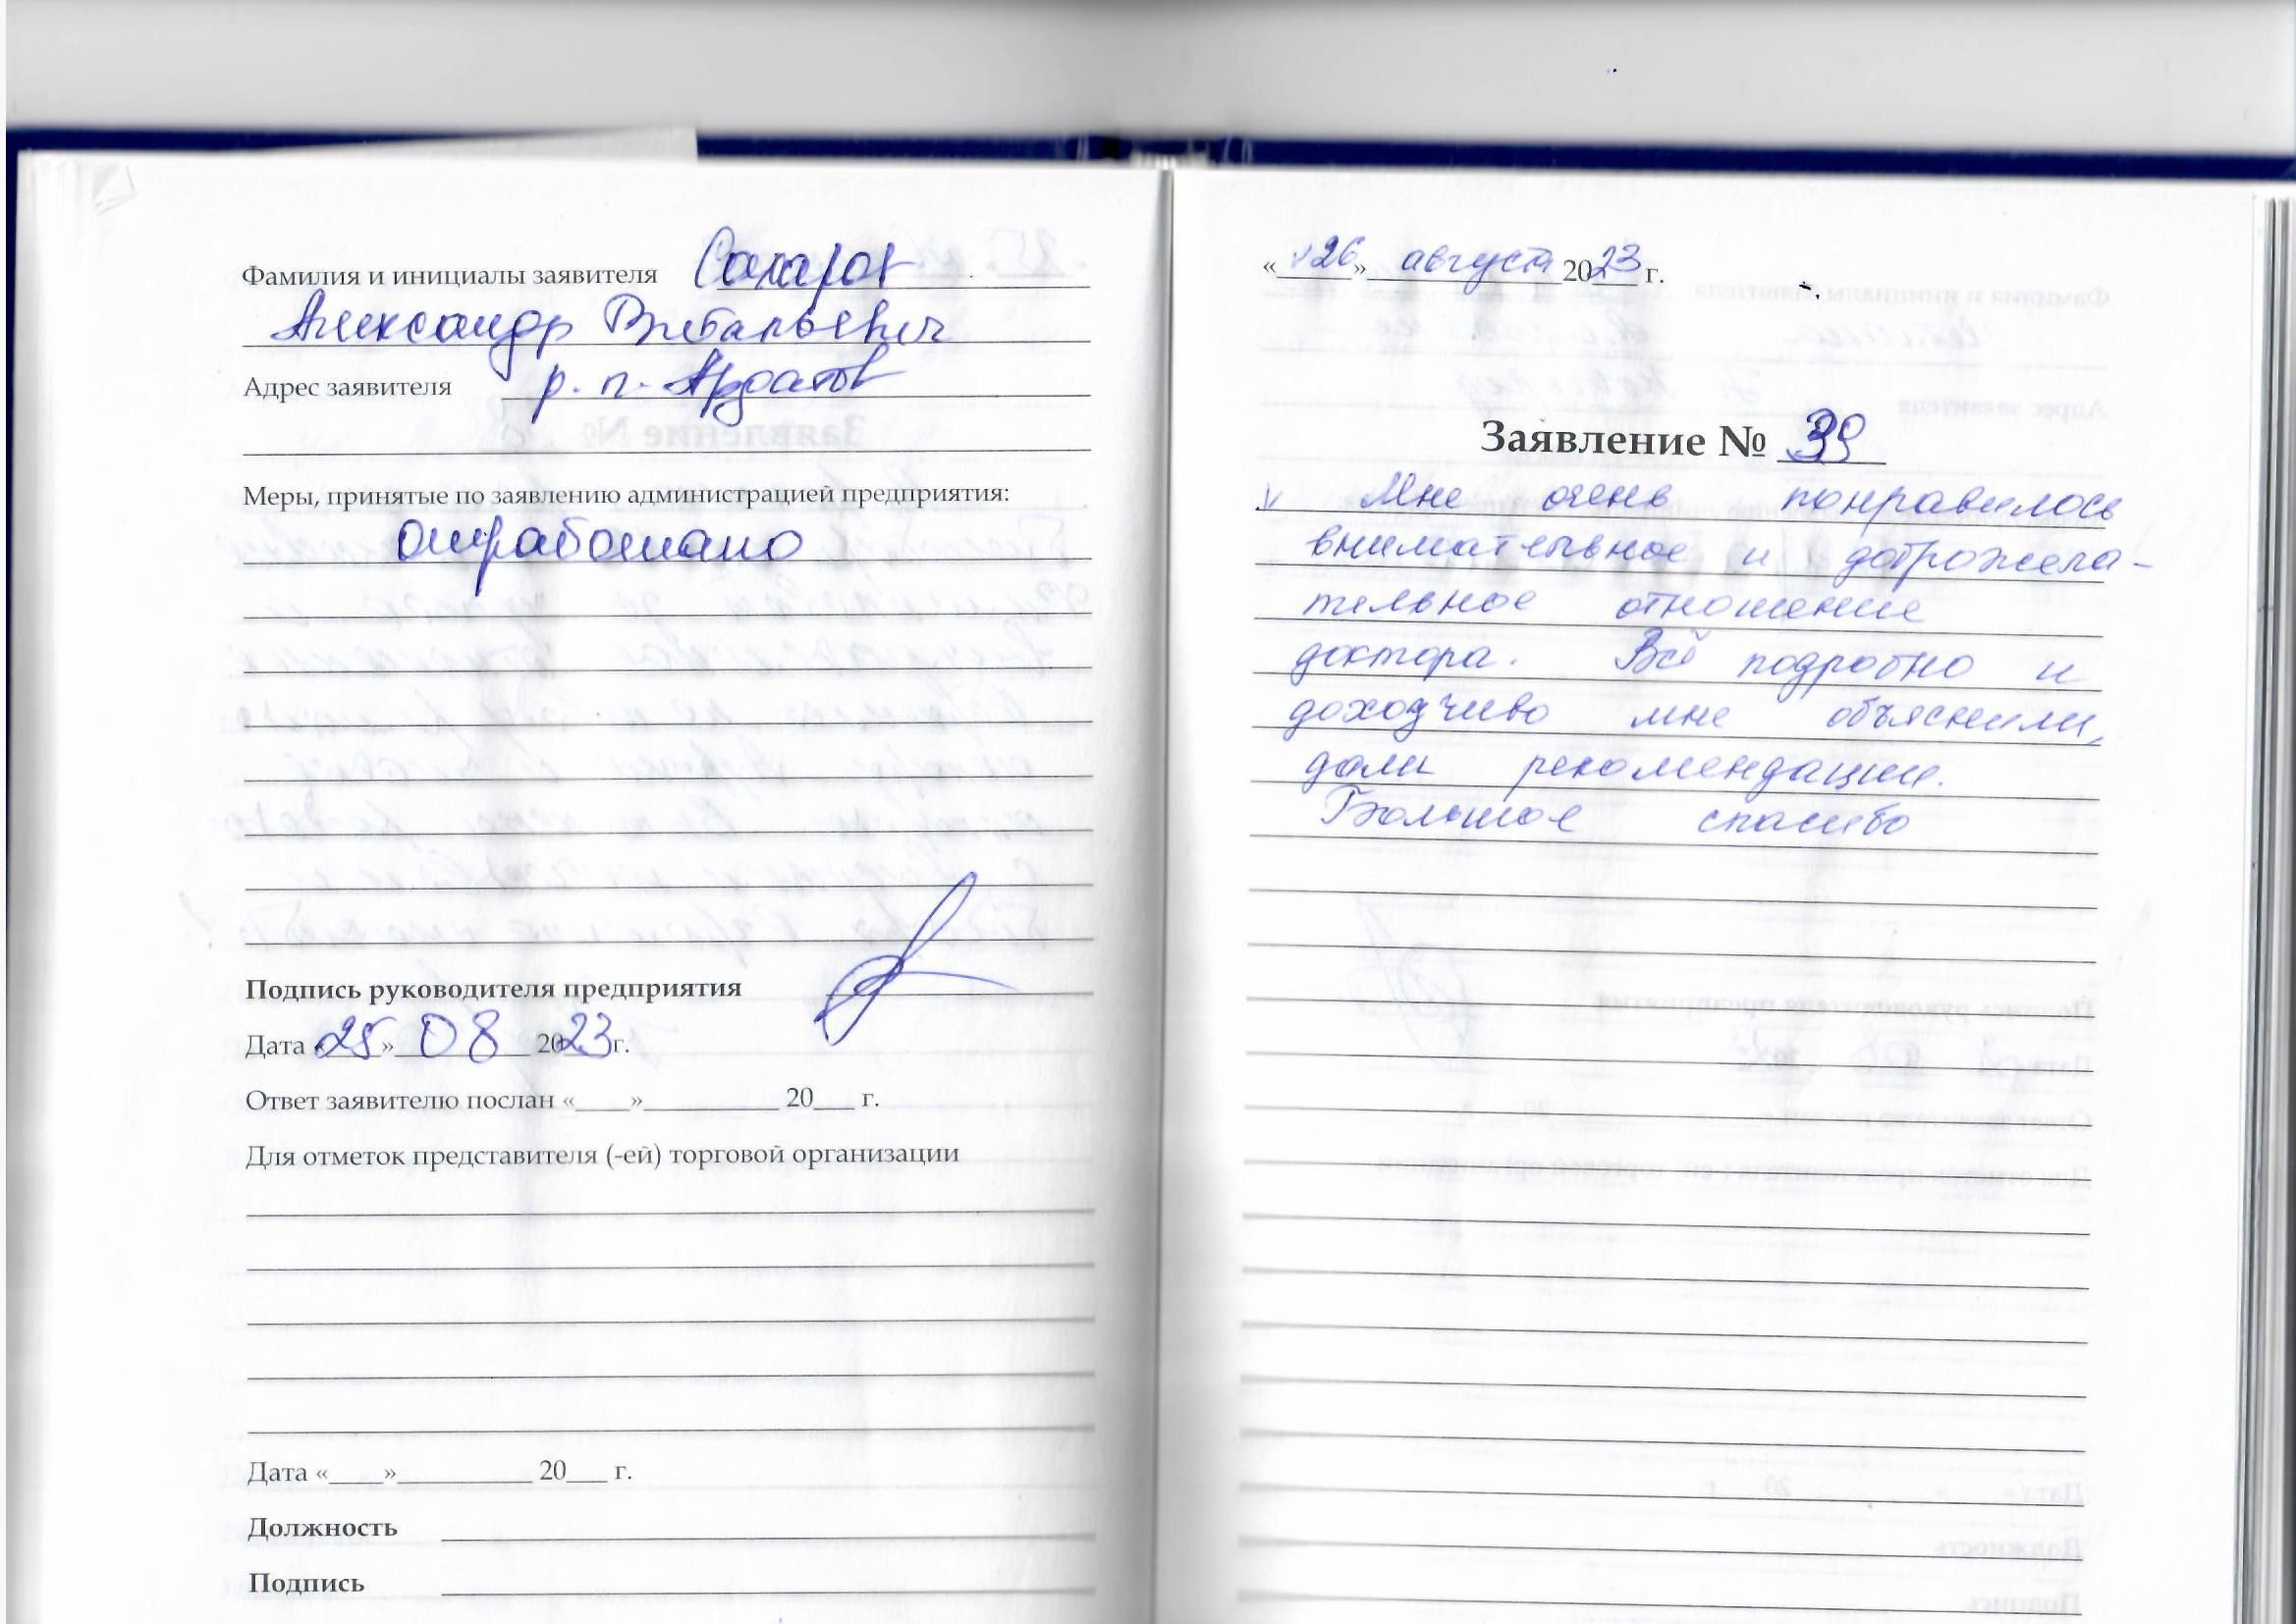 Фамилия и инициалы заявителя Сахаров
Александр Витальевич
Адрес заявителя р. п. Ардатов
Меры, принятые по заявлению администрацией предприятия:
отработано
Подпись руководителя предприятия
Дата «25» 08 2023 г.
Ответ заявителю послан «____»__________ 20___ г.
Для отметок представителя (-ей) торговой организации
Дата «____»__________ 20___ г.
Должность
Подпись
«26» августа 2023 г.
Заявление № 39
v Мне очень понравилось
внимательное и доброжела-
тельное отношение
доктора. Всё подробно и
доходчиво мне объяснили,
дали рекомендации.
Большое спасибо